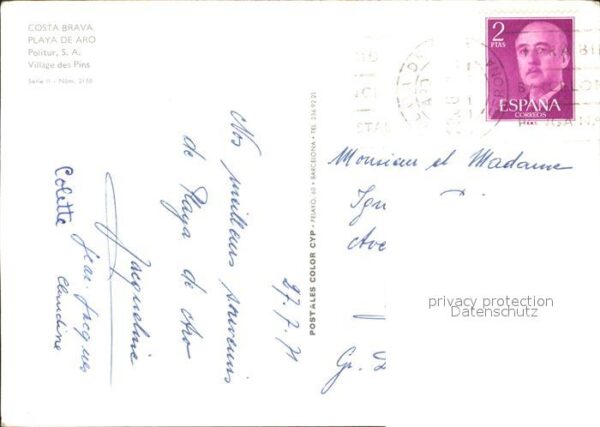 COSTA BRAVA
PLAYA DE ARO
Politur, S. A.
Village des Pins
Serie II - Núm. 2150
Nos meilleurs souvenirs
de Playa de Aro
Jacqueline
Jean. Jacques
Colette
Claudine
27.7.71
POSTALES COLOR CYP · PELAYO, 60 · BARCELONA · TEL. 236 92 21
2
PTAS
ESPAÑA
CORREOS
Monsieur et Madame
Ign
Ave
Gr. D
privacy protection
Datenschutz